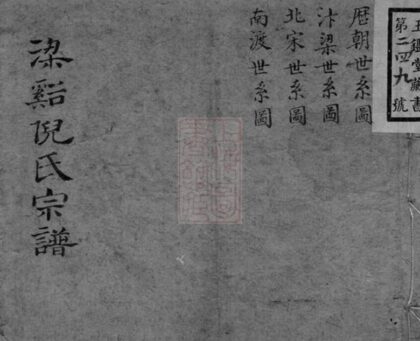 第二四九號
歷朝世系圖
汴梁世系圖
北宋世系圖
南渡世系圖
梁谿倪氏宗譜